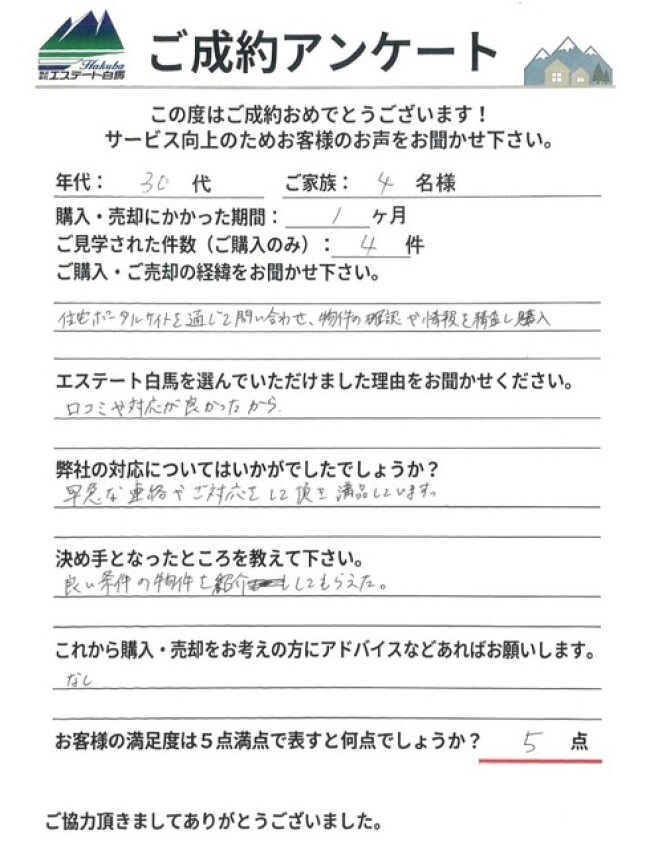 Hakuba
株式会社エステート白馬
ご成約アンケート
この度はご成約おめでとうございます！
サービス向上のためお客様のお声をお聞かせ下さい。
年代： 30 代 ご家族： 4 名様
購入・売却にかかった期間： 1 ヶ月
ご見学された件数（ご購入のみ）： 4 件
ご購入・ご売却の経緯をお聞かせ下さい。
住宅ポータルサイトを通じて問い合わせ、物件の確認や情報を精査し購入
エステート白馬を選んでいただけました理由をお聞かせください。
口コミや対応が良かったから.
弊社の対応についてはいかがでしたでしょうか？
早急な連絡やご対応をして頂き満足しています。
決め手となったところを教えて下さい。
良い条件の物件を紹介もしてもらえた。
これから購入・売却をお考えの方にアドバイスなどあればお願いします。
なし
お客様の満足度は５点満点で表すと何点でしょうか？ 5 点
ご協力頂きましてありがとうございました。